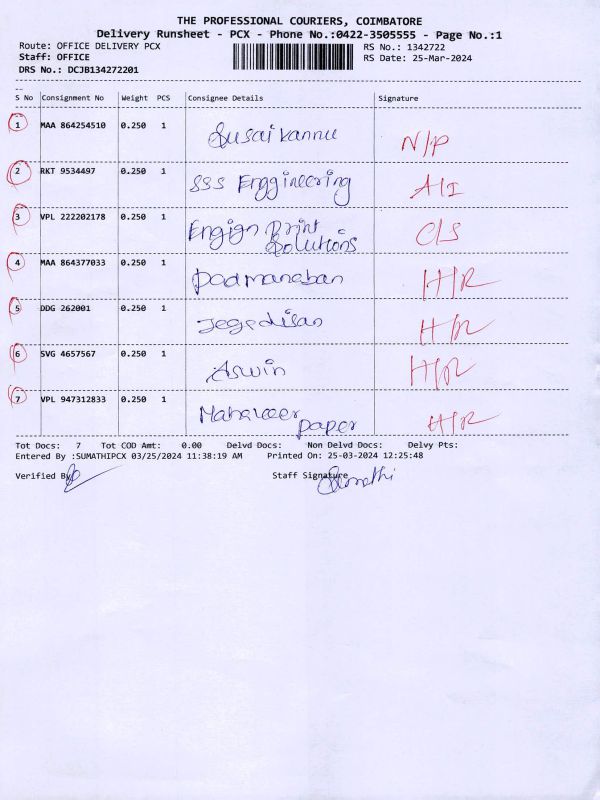 THE PROFESSIONAL COURIERS, COIMBATORE
Delivery Runsheet - PCX - Phone No.:0422-3505555 - Page No.:1
Route: OFFICE DELIVERY PCX RS No.: 1342722
Staff: OFFICE RS Date: 25-Mar-2024
DRS No.: DCJB134272201
S No Consignment No Weight PCS Consignee Details Signature
1 MAA 864254510 0.250 1 Susai kannu N/P
2 RKT 9534497 0.250 1 SSS Enggineering A/I
3 VPL 222202178 0.250 1 Engign Print C/S
Solutions
4 MAA 864377033 0.250 1 padmanaban H/R
5 DDG 262001 0.250 1 Jegedisan H/R
6 SVG 4657567 0.250 1 Aswin H/R
7 VPL 947312833 0.250 1 Mahaveer H/R
paper
Tot Docs: 7 Tot COD Amt: 0.00 Delvd Docs: Non Delvd Docs: Delvy Pts:
Entered By :SUMATHIPCX 03/25/2024 11:38:19 AM Printed On: 25-03-2024 12:25:48
Verified By Staff Signature